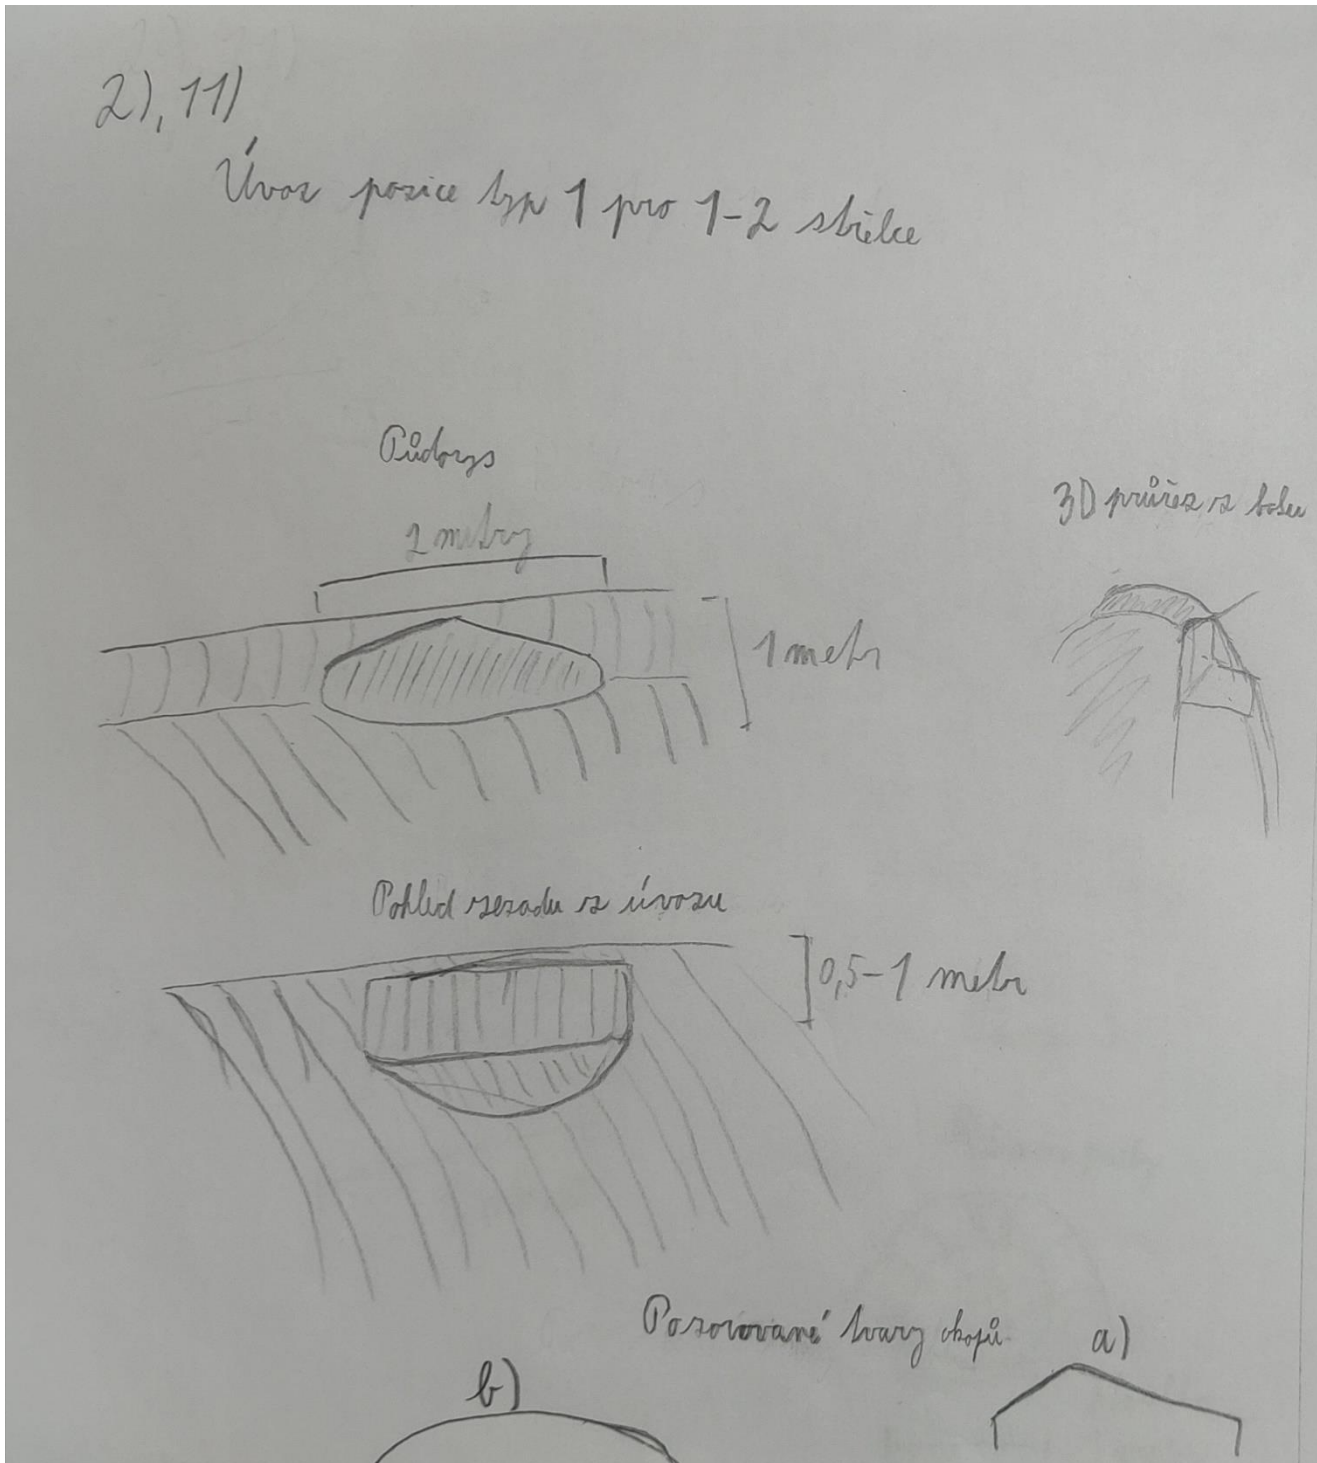 2), 11)
Úvoz pozice typ 1 pro 1-2 střelce
Půdorys
2 metry
1 metr
3D průřez z boku
Pohled zezadu z úvozu
0,5-1 metr
Pozorované tvary okopů
a)
b)